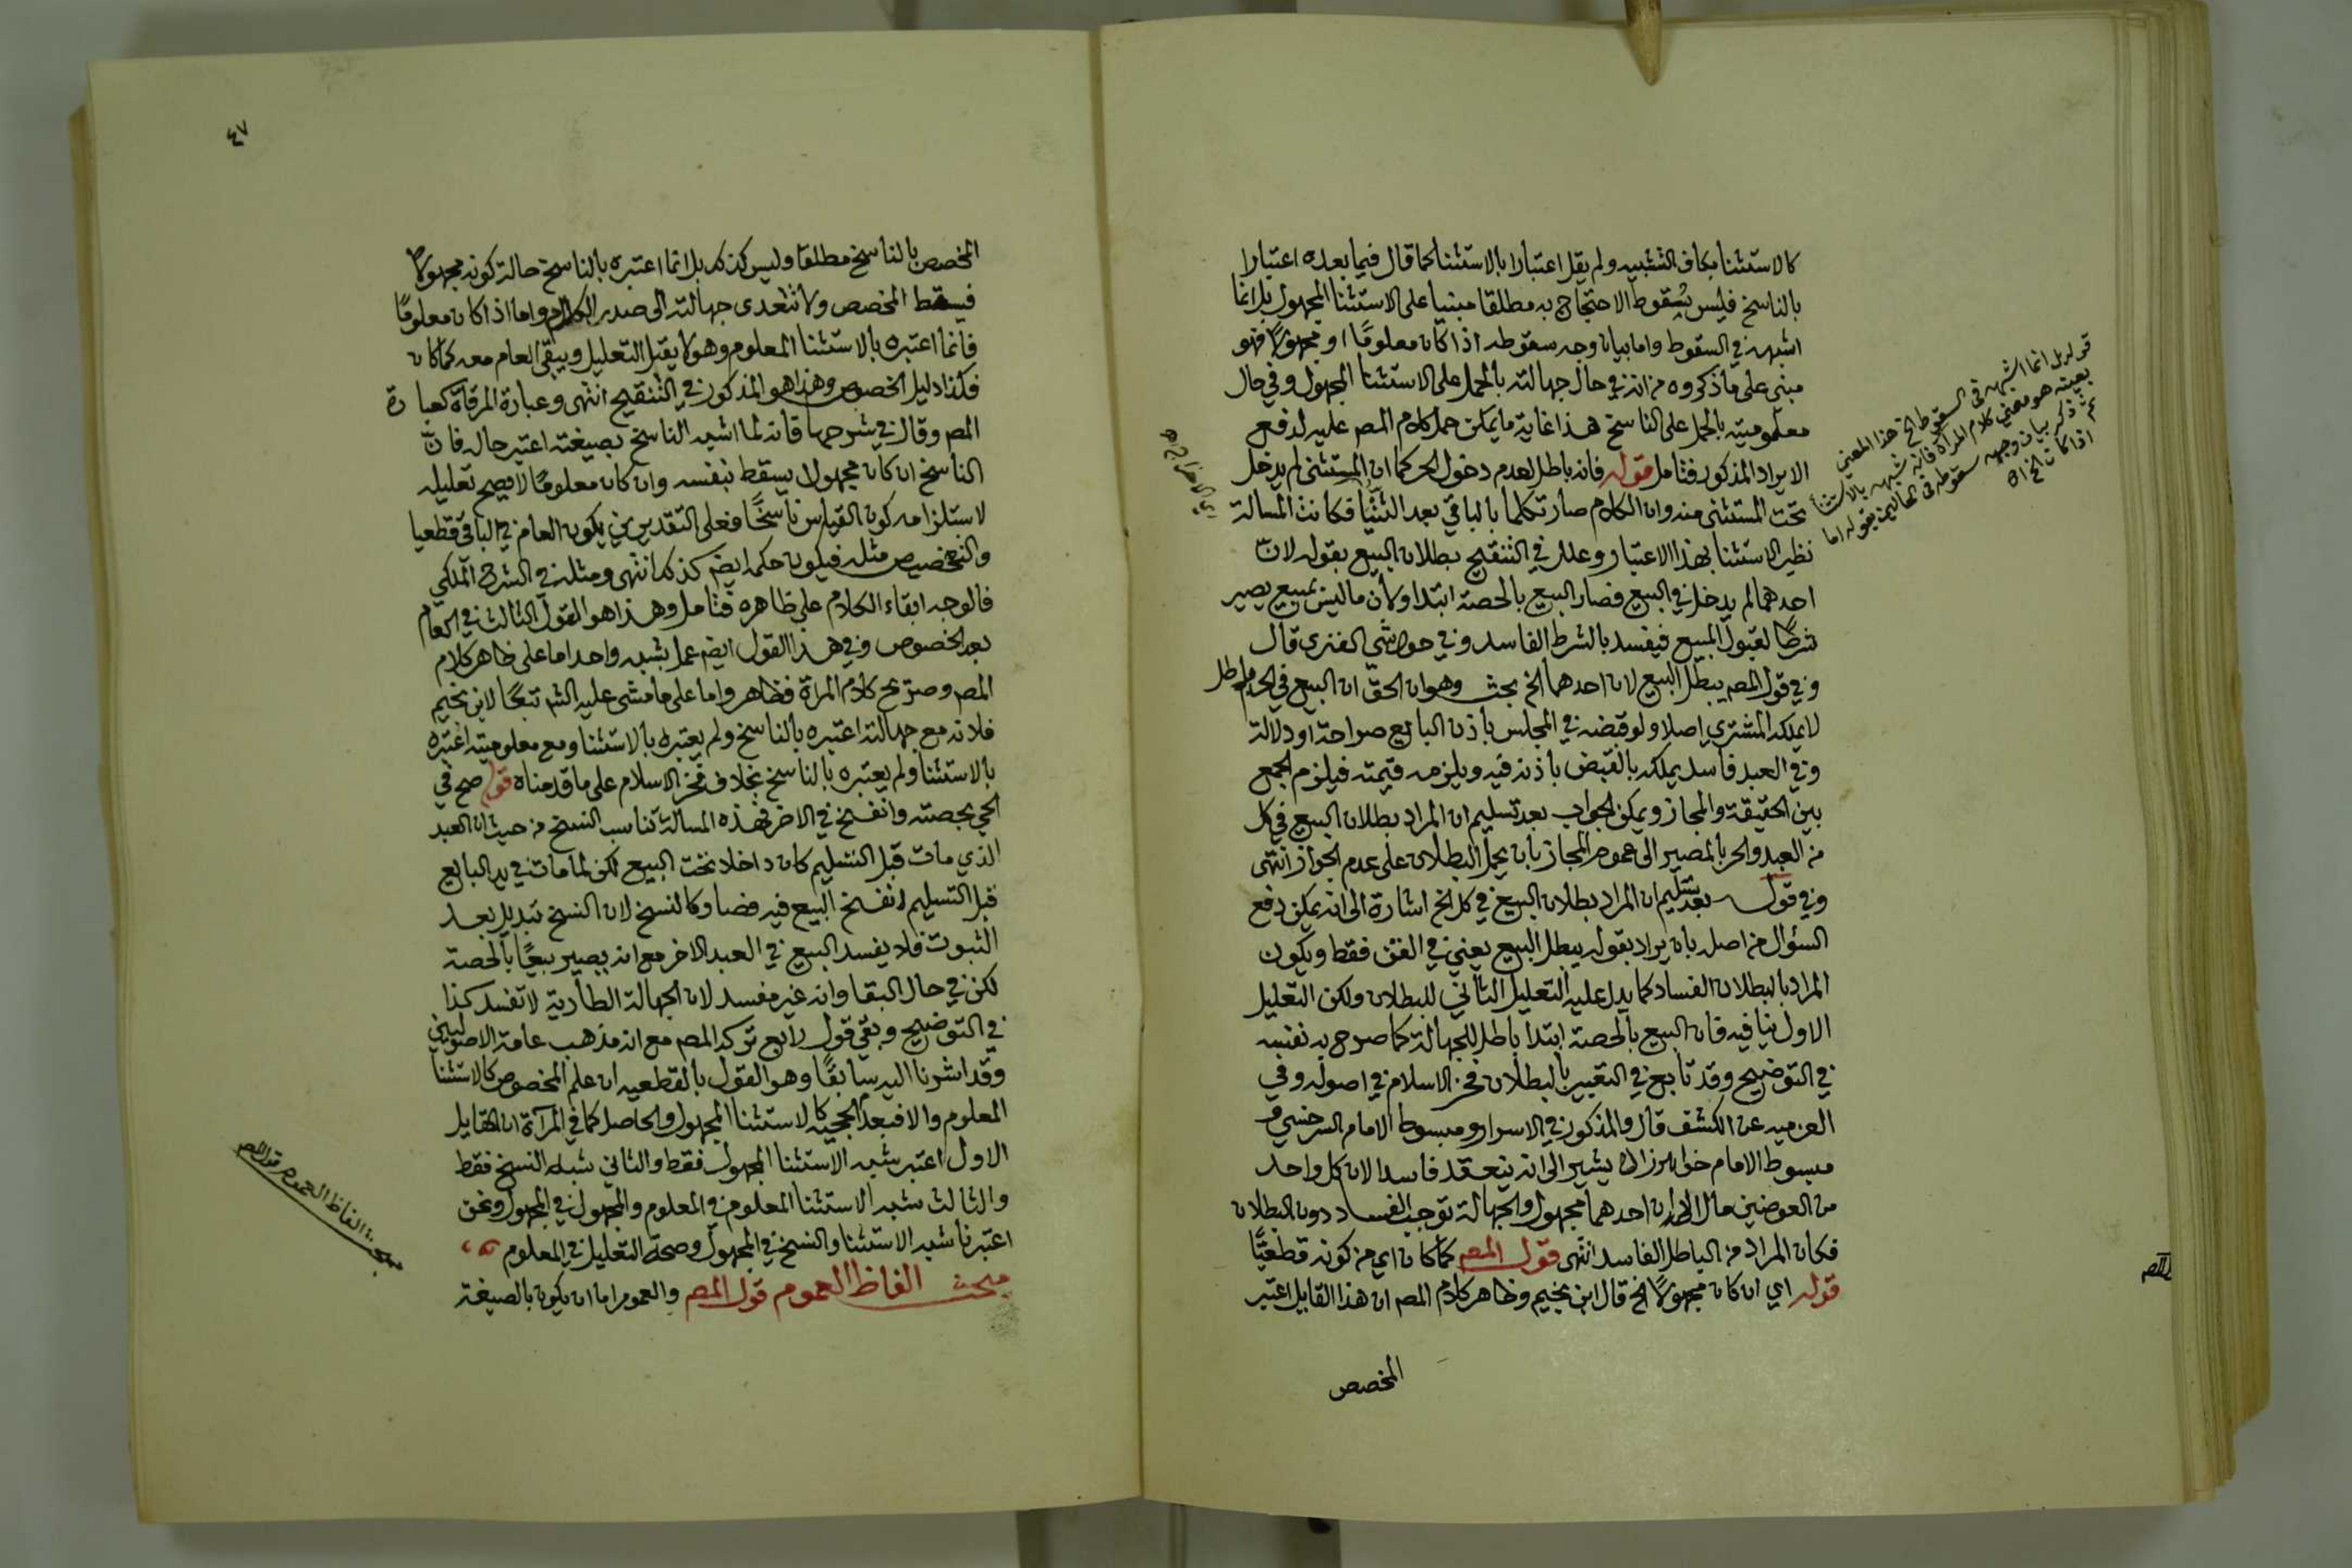 كالاستثنا بكاف التشبيه ولم يقل اعتبارا بالاستثنا كما قال فيما بعده اعتبارا
بالناسخ فليس سقوط الاحتجاج به مطلقا مبنيا على الاستثنا المجهول بل انما
اشبهه في السقوط واما بيان وجه سقوطه اذا كان معلومًا او مجهولا فهو
مبنى على ما ذكروه من انه في حال جهالته بالحمل على الاستثنا المجهول وفي حال
معلوميته بالحمل على الناسخ هذا غاية ما يمكن حمل كلام المص عليه لدفع
الايراد المذكور فتامل قوله فانه باطل لعدم دخول الحر كما ان المستثنى لم يدخل
تحت المستثنى منه وان الكلام صار تكلما بالباقي بعد الثنيا فكانت المسالة
نظير الاستثنا بهذا الاعتبار وعلل في التنقيح بطلان البيع بقوله لان
احدهما لم يدخل في البيع فصار البيع بالحصة ابتدا ولان ما ليس بمبيع يصير
شرطًا لقبول المبيع فيفسد بالشرط الفاسد وفي حواشي الفنرى قال
وفي قول المص يبطل البيع لان احدهما الخ بحث وهو ان الحق ان البيع في الحر باطل
لا يملكه المشترى اصلا ولو قبضه في المجلس باذن البايع صراحة او دلالة
وفي العبد فاسد يملكه بالقبض باذنه فيه ويلزمه قيمته فيلزم الجمع
بين الحقيقة والمجاز ويمكن الجواب بعد تسليم ان المراد بطلان البيع في كل
من العبد والحر بالمصير الى عموم المجاز بان يحمل البطلان على عدم الجواز انتهى
وفي قوله بعد تسليم ان المراد بطلان البيع في كل الخ اشارة الى انه يمكن دفع
السؤال من اصله بان يراد بقوله يبطل البيع يعني في القن فقط ويكون
المراد بالبطلان الفساد كما يدل عليه التعليل الثاني للبطلان ولكن التعليل
الاول ينافيه فان البيع بالحصة ابتدا باطل للجهالة كما صرح به نفسه
في التوضيح وقد تابع في التعبير بالبطلان فخر الاسلام في اصوله وفي
العزميه عن الكشف قال والمذكور في الاسرار ومبسوط الامام السرخسي و
مبسوط الامام خواهرزاده يشير الى انه ينعقد فاسدا لان كل واحد
من العوضين مال الا ان احدهما مجهول والجهالة توجب الفساد دون البطلان
فكان المراد من الباطل الفاسد انتهى قول المص كما كان اي من كونه قطعيًا
قوله اي ان كان مجهولًا الخ قال ابن نجيم وظاهر كلام المص ان هذا القايل اعتبر
المخصص
قوله بل انما اشبهه في السقوط الخ هذا المعنى
بعينه هو معنى كلام المرآة فانه شبهه بالاستثنا
ثم ذكر بيان وجه سقوطه في الحالين بقوله اما
اذا كان الخ اه
٤٧
المخصص بالناسخ مطلقا وليس كذلك بل انما اعتبره بالناسخ حالة كونه مجهولا
فيسقط المخصص ولا تتعدى جهالته الى صدر الكلام واما اذا كان معلومًا
فانما اعتبره بالاستثنا المعلوم وهو لا يقبل التعليل ويبقى العام معه كما كان
فكذا دليل الخصوص وهذا هو المذكور في التنقيح انتهى وعبارة المرقاة كعبارة
المص وقال في شرحها فانه لما اشبه الناسخ بصيغته اعتبر حاله فان
الناسخ ان كان مجهولا يسقط بنفسه وان كان معلومًا لا يصح تعليله
لاستلزامه كون القياس ناسخًا فعلى التقديرين يكون العام في الباقي قطعيا
والتخصيص مثله فيكون حكمه ايضا كذلك انتهى ومثله في الشرح الملكي
فالوجه ابقاء الكلام على ظاهره فتامل وهذا هو القول الثالث في العام
بعد الخصوص وفي هذا القول ايضا عمل بشبه واحد اما على ظاهر كلام
المص وصريح كلام المرآة فظاهر واما على ما مشى عليه الش تبعًا لابن نجيم
فلانه مع جهالته اعتبره بالناسخ ولم يعتبره بالاستثنا ومع معلوميته اعتبره
بالاستثنا ولم يعتبره بالناسخ بخلاف فخر الاسلام على ما قدمناه قوله صح في
الحي بحصته وانفسخ في الاخر فهذه المسالة تناسب النسخ من حيث ان العبد
الذي مات قبل التسليم كان داخلا تحت البيع لكن لما مات في يد البايع
قبل التسليم انفسخ البيع فيه فصار كالنسخ لان النسخ تبديل بعد
الثبوت فلا يفسد البيع في العبد الاخر مع انه يصير بيعًا بالحصة
لكن في حال البقا وانه غير مفسد لان الجهالة الطارية لا تفسد كذا
في التوضيح وبقي قول رابع تركه المص مع انه مذهب عامة الاصوليين
وقد اشرنا اليه سابقًا وهو القول بالقطعيه ان علم المخصوص كالاستثنا
المعلوم والا فبعدم الحجيه كالاستثنا المجهول والحاصل كما في المرآة ان القايل
الاول اعتبر شبه الاستثنا المجهول فقط والثاني شبه النسخ فقط
والثالث شبه الاستثنا المعلوم في المعلوم والمجهول في المجهول ونحن
اعتبرنا شبه الاستثنا والنسخ في المجهول وصحة التعليل في المعلوم
مبحث الفاظ العموم قول المص والعموم اما ان يكون بالصيغة
مبحث الفاظ العموم قول المص